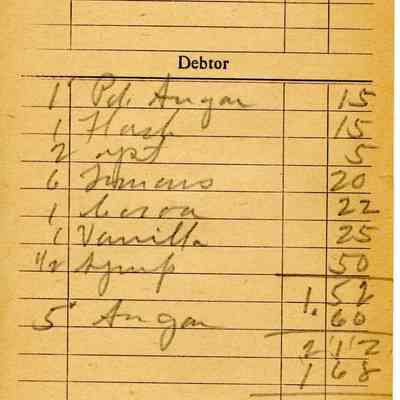 Debtor
1 Pd. Sugar 15
1 Hash 15
2 5
6 Lemons 20
1 Cocoa 22
1 Vanilla 25
1/2 Syrup 50
1.52
5 Sugar 60
2 12
1 68